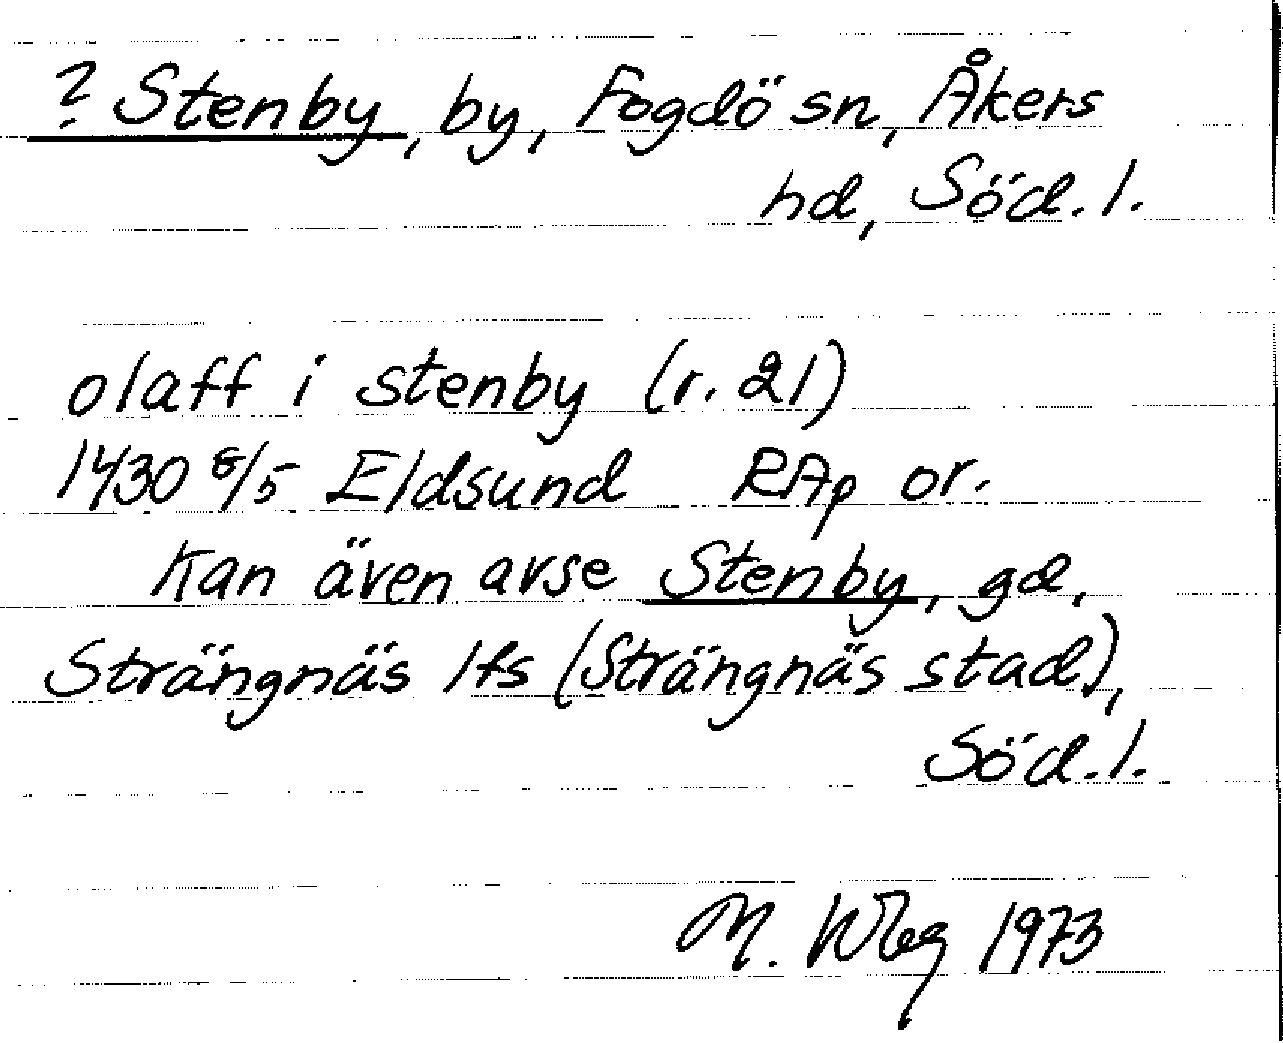 ? Stenby, by, Fogdö sn, Åkers
hd, Söd. l.
olaff i stenby (r. 21)
1430 8/5 Eldsund RAp or.
Kan även avse Stenby, gd,
Strängnäs lfs (Strängnäs stad),
Söd. l.
M. Wbg 1973